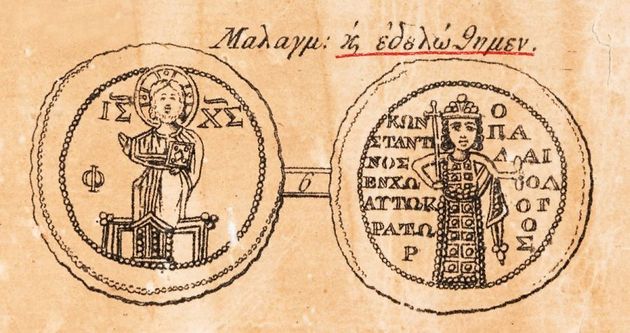 Μαλαγμ: κ̀ ἐδȣλώθημεν.
ΙΣ ΧΣ
Φ
6
ΚΩΝ
ΣΤΑΝΤΙ
ΝΟΣ
ΕΝΧΩ
ΑΥΤΩΚ
ΡΑΤΩ
Ρ
Ο
ΠΑ
Λ ΑΙ
ȢΟΛ
ΟΓ
ΟΣ